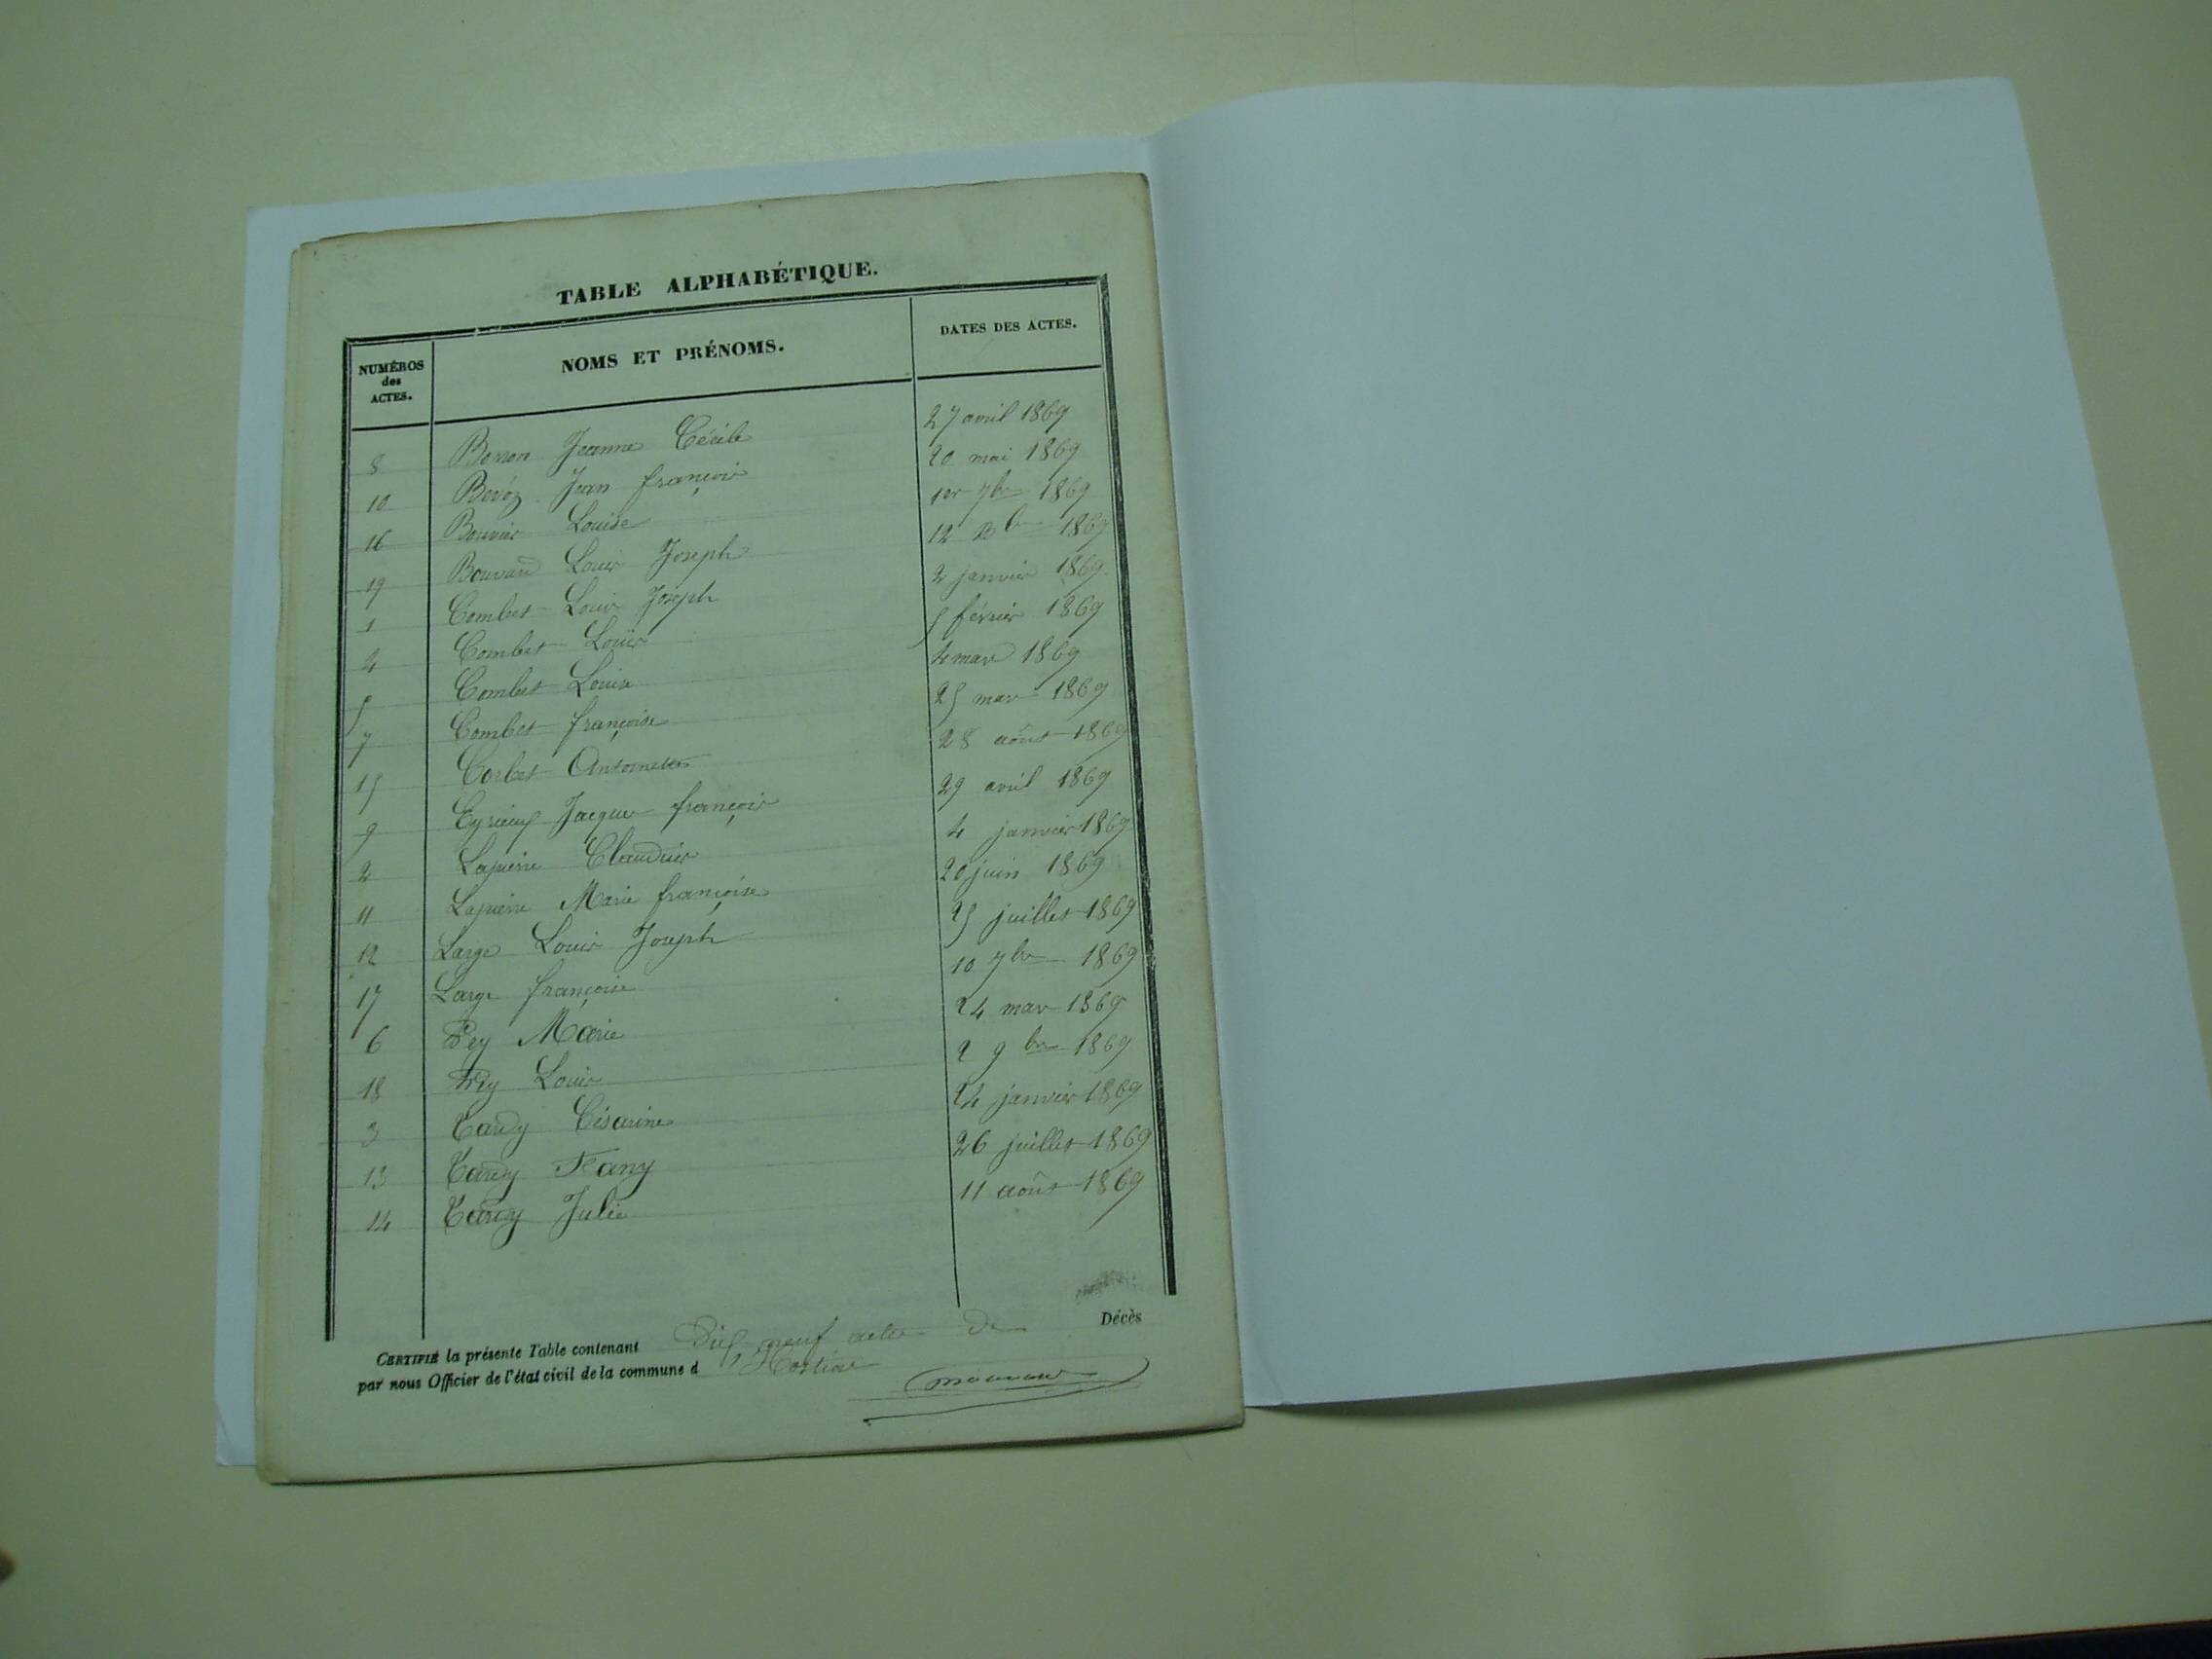 TABLE ALPHABÉTIQUE.
NUMÉROS des ACTES. NOMS ET PRÉNOMS. DATES DES ACTES.
8 Jeanne Cécile 27 avril 1869
10 Jean françois 20 mai 1869
16 Bouvier Louise 1er 7bre 1869
19 Bouvard Louis Joseph 12 1869
1 Combet Louis Joseph 2 janvier 1869
4 Combet Louis 5 février 1869
5 Combet Louise 4 mars 1869
7 Combet françoise 25 mars 1869
15 Corbet Antoinette 28 août 1869
9 Jacques françois 29 avril 1869
2 Lapierre 4 janvier 1869
11 Lapierre Marie françoise 20 juin 1869
12 Large Louis Joseph 25 juillet 1869
17 Large françoise 10 7bre 1869
6 Pey Marie 24 mars 1869
18 Pey Louis 2 9bre 1869
3 Tardy Césarine 24 janvier 1869
13 Tardy Fany 26 juillet 1869
14 Tardy Julie 11 août 1869
CERTIFIÉ la présente Table contenant Dix neuf actes de Décès
par nous Officier de l'état civil de la commune d